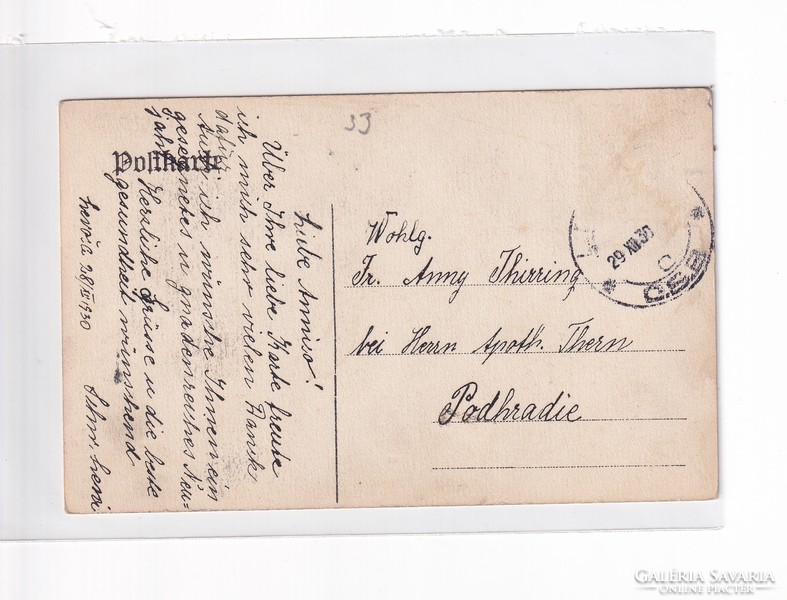 Postkarte
33
Liebe Annisó!
Über Ihre liebe Karte freute
ich mich sehr vielen Dank
dafür.
Auch ich wünsche Ihnen ein
gesegnetes u gnadenreiches Neu=
jahr. Herzliche Grüsse u die beste
gesundheit wünschend
28/XII 1930
Wohlg.
Fr. Anny Thirring
bei Herrn Apoth. Thern
Podhradie
29.XII.30
GALÉRIA SAVARIA
ONLINE PIACTÉR